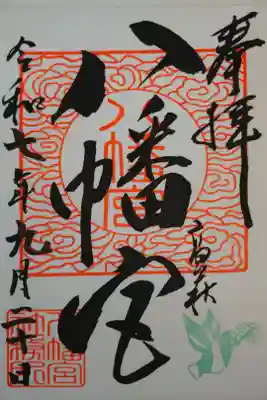 奉拝
高萩
八幡宮
八幡宮
令和七年九月二十日